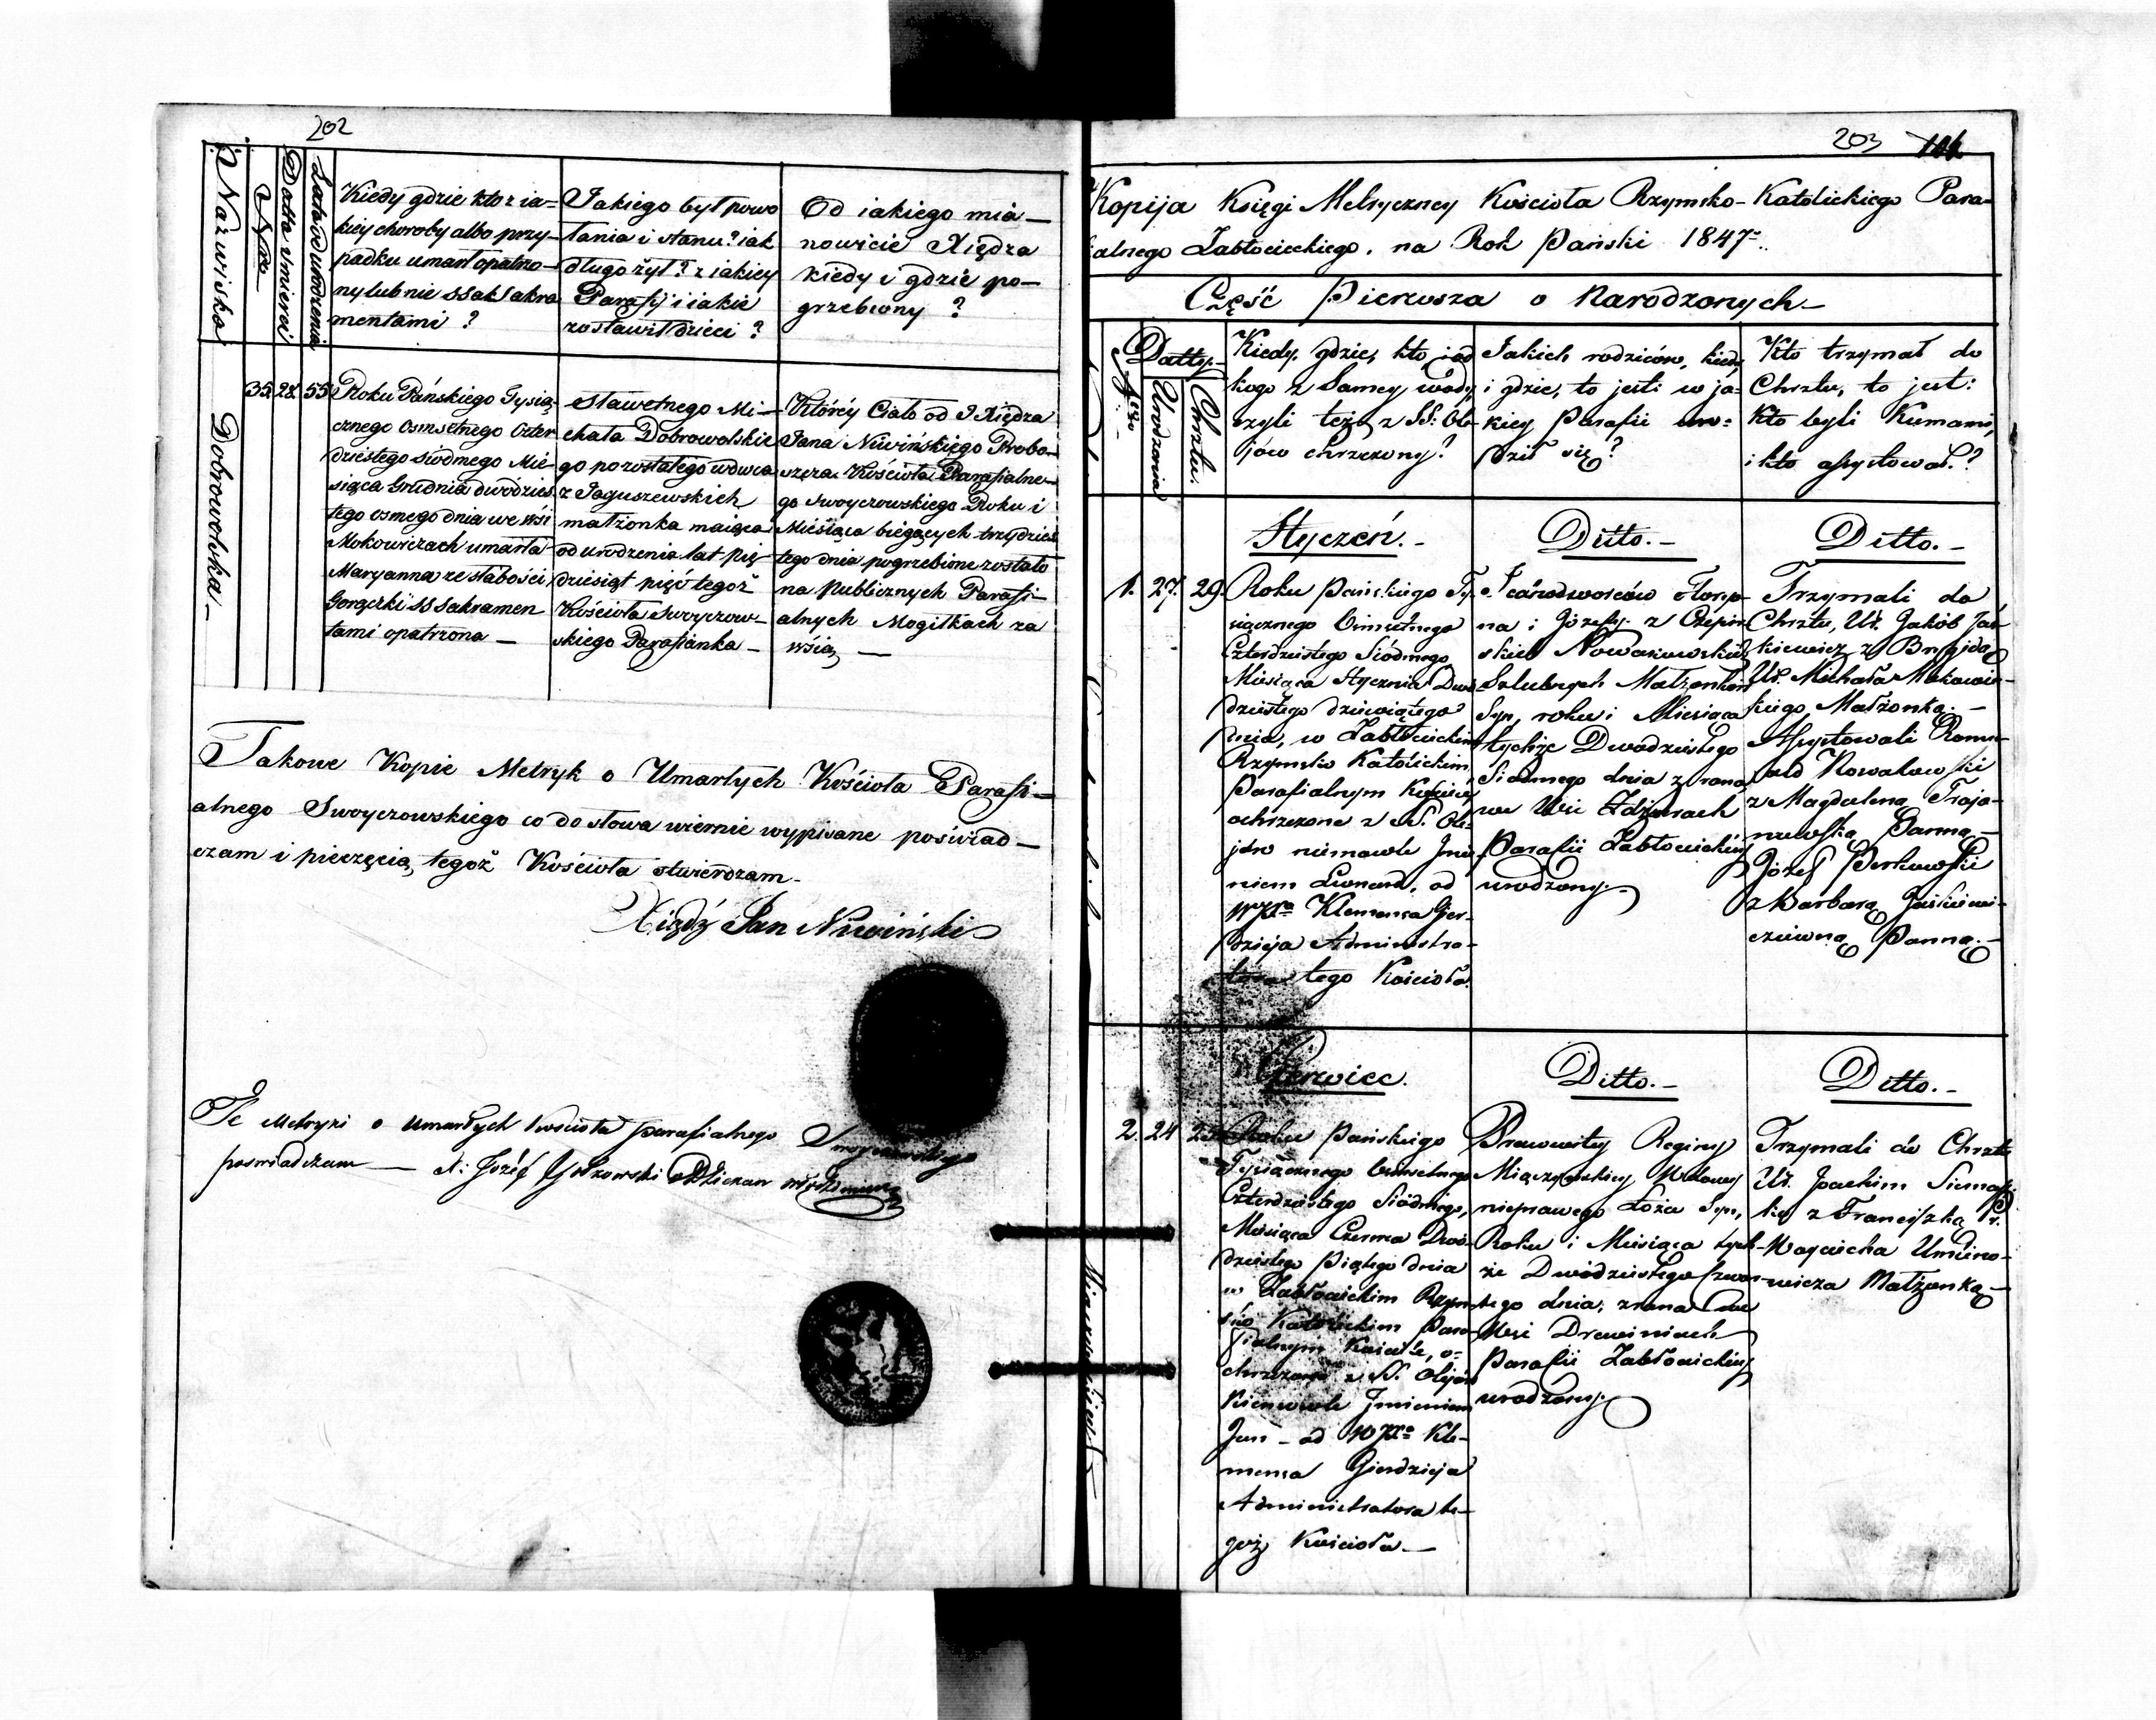 202
Nazwiska
Nro
Datta śmierci
Lata od urodzenia
Kiedy gdzie kto z ia=
kiey choroby albo przy-
padku umarł opatrzo-
ny lub nie SSak Sakra
mentami ?
Jakiego był powo
łania i stanu? iak
długo żył? z iakiey
Parafij i iakie
zostawił dzieci ?
Od iakiego mia-
nowicie Xiędza
kiedy i gdzie po-
grzebiony ?
Dobrowolska-
35. 28. 55
Roku Pańskiego Tysią
cznego Osmsetnego Czter
dziestego siódmego Mie
siąca Grudnia dwódzies
tego osmego dnia we wsi
Mokowiczach umarła
Maryanna ze słabości
Gorączki SS Sakramen
tami opatrzona -
Sławetnego Mi-
chała Dobrowolskie
go pozostałego wdwca
z Jaguszewskich
małżonka maiąca
od urodzenia lat pię
dziesiąt pięć tegoż
Kościoła Swoyczow-
skiego Parafianka -
Któréy Ciało od J Xiędza
Jana Niwińskiego Probo-
szcza Kościoła Parafialne-
go Swoyczowskiego Roku i
Miesiąca biegących trzydzies
tego dnia pogrzebione zostało
na Publicznych Parafi-
alnych Mogiłkach za
wsią -
Takowe Kopie Metryk o Umarłych Kościoła Parafi-
alnego Swoyczowskiego co do słowa wiernie wypisane poświad-
czam i pieczęcią tegoż Kościoła stwierdzam-
Xiądz Jan Niwiński
Te Metryki o Umarłych Kościoła parafialnego Swoyczowskiego
poswiadczam - X. Józef Dziekan
203
Kopija Księgi Metryczney Kościoła Rzymsko-Katolickiego Para-
alnego Zabłocieckiego, na Rok Pański 1847.
Część Pierwsza o Narodzonych-
Datty.
Urodzenia
Chrztu.
Kiedy, gdzie, kto, i od
kogo z Samey wody,
czyli też z SS. Ole-
jów chrzczony?
Jakich rodziców, kiedy
i gdzie, to jest: w ja-
kiey Parafii uro=
dził się?
Kto trzymał do
Chrztu, to jest:
Kto byli Kumami,
i kto assystował?
Styczeń.-
Ditto.-
Ditto.-
1. 27. 29.
Roku Pańskiego Ty-
siącznego Osmsetnego
Czterdziestego Siódmego
Miesiąca Stycznia Dwu
dziestego dziewiątego
dnia, w Zabłocieckim
Rzymsko Katolickim
Parafialnym Kościele
ochrzczone z SS. Ole-
jów niemowle Imie
niem Leonard, od
WJXa Klemensa Gier-
dzieja Administra-
tora tego Kościoła.
Jednodworców Florya
na i Józefy z
skich Nowakowskich
Szlubnych Małżonków
Syn, roku i Miesiąca
tychże Dwudziestego
Siódmego dnia z rana
we Wsi Zdżarach
Parafii Zabłocieckiey
urodzony.-
Trzymali do
Chrztu, Ur. Jakób Jaś
kiewicz z Brygidą
Ur. Michała Makowie-
ckiego Małżonką.-
Assystowali Romu-
ald Nowakowski
z Magdaleną Troja-
nowską Panną.-
Józef Perkowski
z Barbarą Jaśkiewi-
czówną Panną.-
Czerwiec.
Ditto.-
Ditto.-
2. 24 25
Roku Pańskiego
Tysiącznego Osmsetnego
Czterdziestego Siódmego,
Miesiąca Czerwca Dwu-
dziestego Piątego dnia
w Zabłocieckim Rzym-
sko Katolickim Para-
fialnym Kościele, o-
chrzczone z SS. Olejów
Niemowle Imieniem
Jan - od WJXa Kle-
mensa Gierdzieja
Administratora te-
goż Kościoła-
Prawowitey Reginy
Miączyńskiey Wdowy
nieprawego Łoża Syn,
Roku i Miesiąca tych-
że Dwódziestego Czwar-
tego dnia, zrana we
Wsi Drewiniach
Parafii Zabłocieckiey
urodzony.-
Trzymali do Chrztu
Ur. Joachim Siemasz-
ko z Franciszką Ur.
Woyciecha
Małżonką-